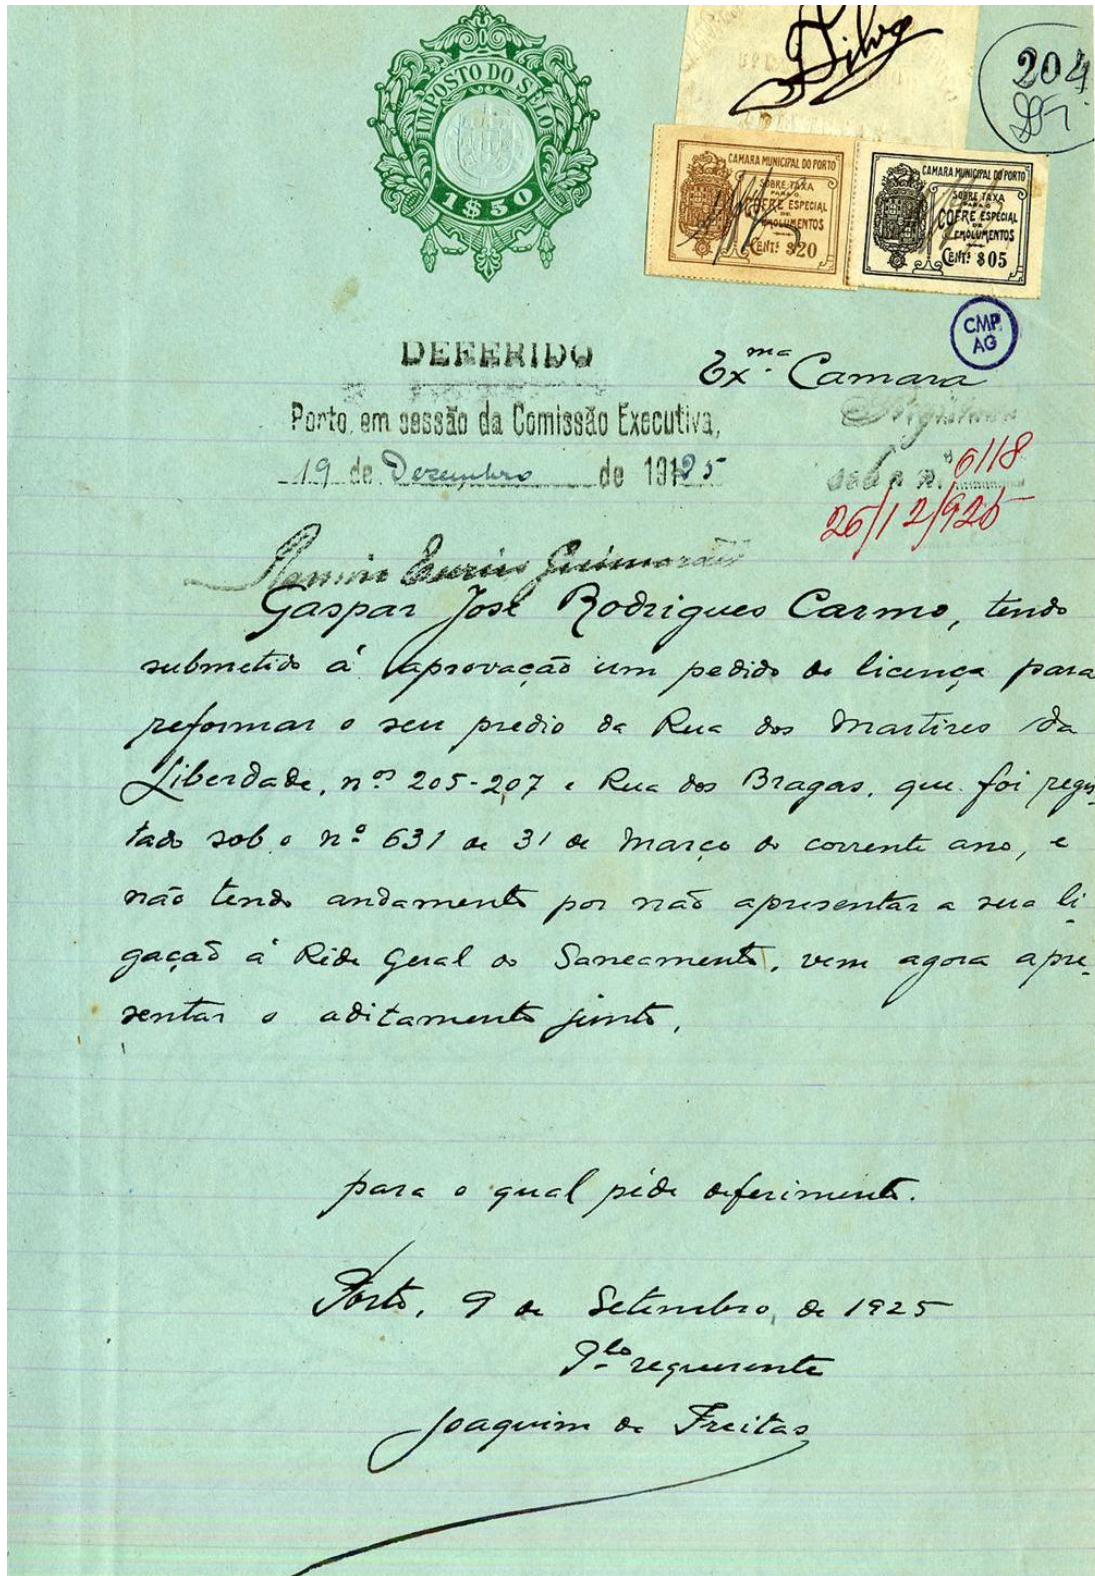 IMPOSTO DO SELO
1$50
Silva
204
CAMARA MUNICIPAL DO PORTO
SOBRE TAXA
PARA O
COFRE ESPECIAL
DE
EMOLUMENTOS
CENT.ˢ $20
CAMARA MUNICIPAL DO PORTO
SOBRE TAXA
PARA O
COFRE ESPECIAL
DE
EMOLUMENTOS
CENT.ˢ $05
CMP
AG
DEFERIDO
Ex.ᵐᵃ Camara
Porto, em sessão da Comissão Executiva,
19 de Dezembro de 1925
sob o n.º 6118
26/12/925
Guimarães
Gaspar José Rodrigues Carmo, tendo
submetido á aprovação um pedido de licença para
reformar o seu predio da Rua dos Martires da
Liberdade, n.ºˢ 205-207 e Rua dos Bragas, que foi regis-
tado sob o nº 631 de 31 de Março do corrente ano, e
não tendo andamento por não apresentar a sua li-
gação á Rêde Geral do Saneamento, vem agora apre-
sentar o aditamento junto,
para o qual péde deferimento.
Porto, 9 de Setembro, de 1925
P.ˡᵒ requerente
Joaquim de Freitas